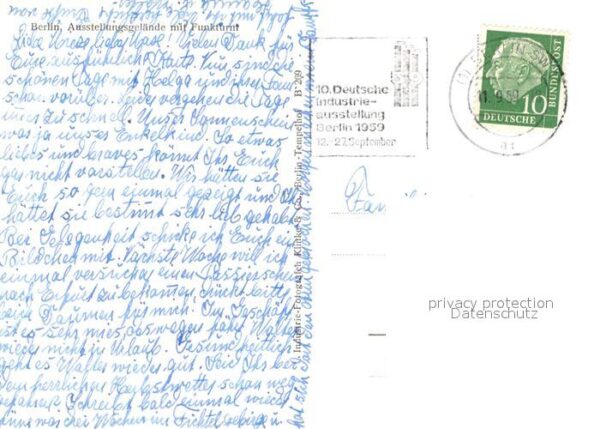 Berlin, Ausstellungsgelände mit Funkturm
Vielen Dank für
Eure ausführliche Karte. Nun sind die
schönen Tage mit Helga und ihren
schon vorüber. Leider vergehen die Tage
immer zu schnell. Unser Sonnenschein
war ja unser Enkelkind. So etwas
liebes und braves könnt Ihr Euch
gar nicht vorstellen. Wir hätten sie
Euch so gern einmal gezeigt und Ihr
hättet sie bestimmt sehr lieb gehabt.
Bei Gelegenheit schicke ich Euch ein
Bildchen mit. Nächste Woche will ich
einmal versuchen einen Passierschein
nach Erfurt zu bekommen. Drückt bitte
den Daumen für mich. Im Geschäft
ist es sehr mies, deswegen fährt Walter
wieder nicht in Urlaub. Gesundheitlich
geht es Walter wieder gut. Seid Ihr bei
dem herrlichen Herbstwetter schon weg
gefahren? Schreibt bald einmal wieder
Wochen im Fichtelgebirge u.
hat sich
Industrie-Fotografen Klinke & Co., Berlin-Tempelhof B 209
10. Deutsche
Industrie-
ausstellung
Berlin 1959
12.-27. September
10
DEUTSCHE
BUNDESPOST
Fam
privacy protection
Datenschutz